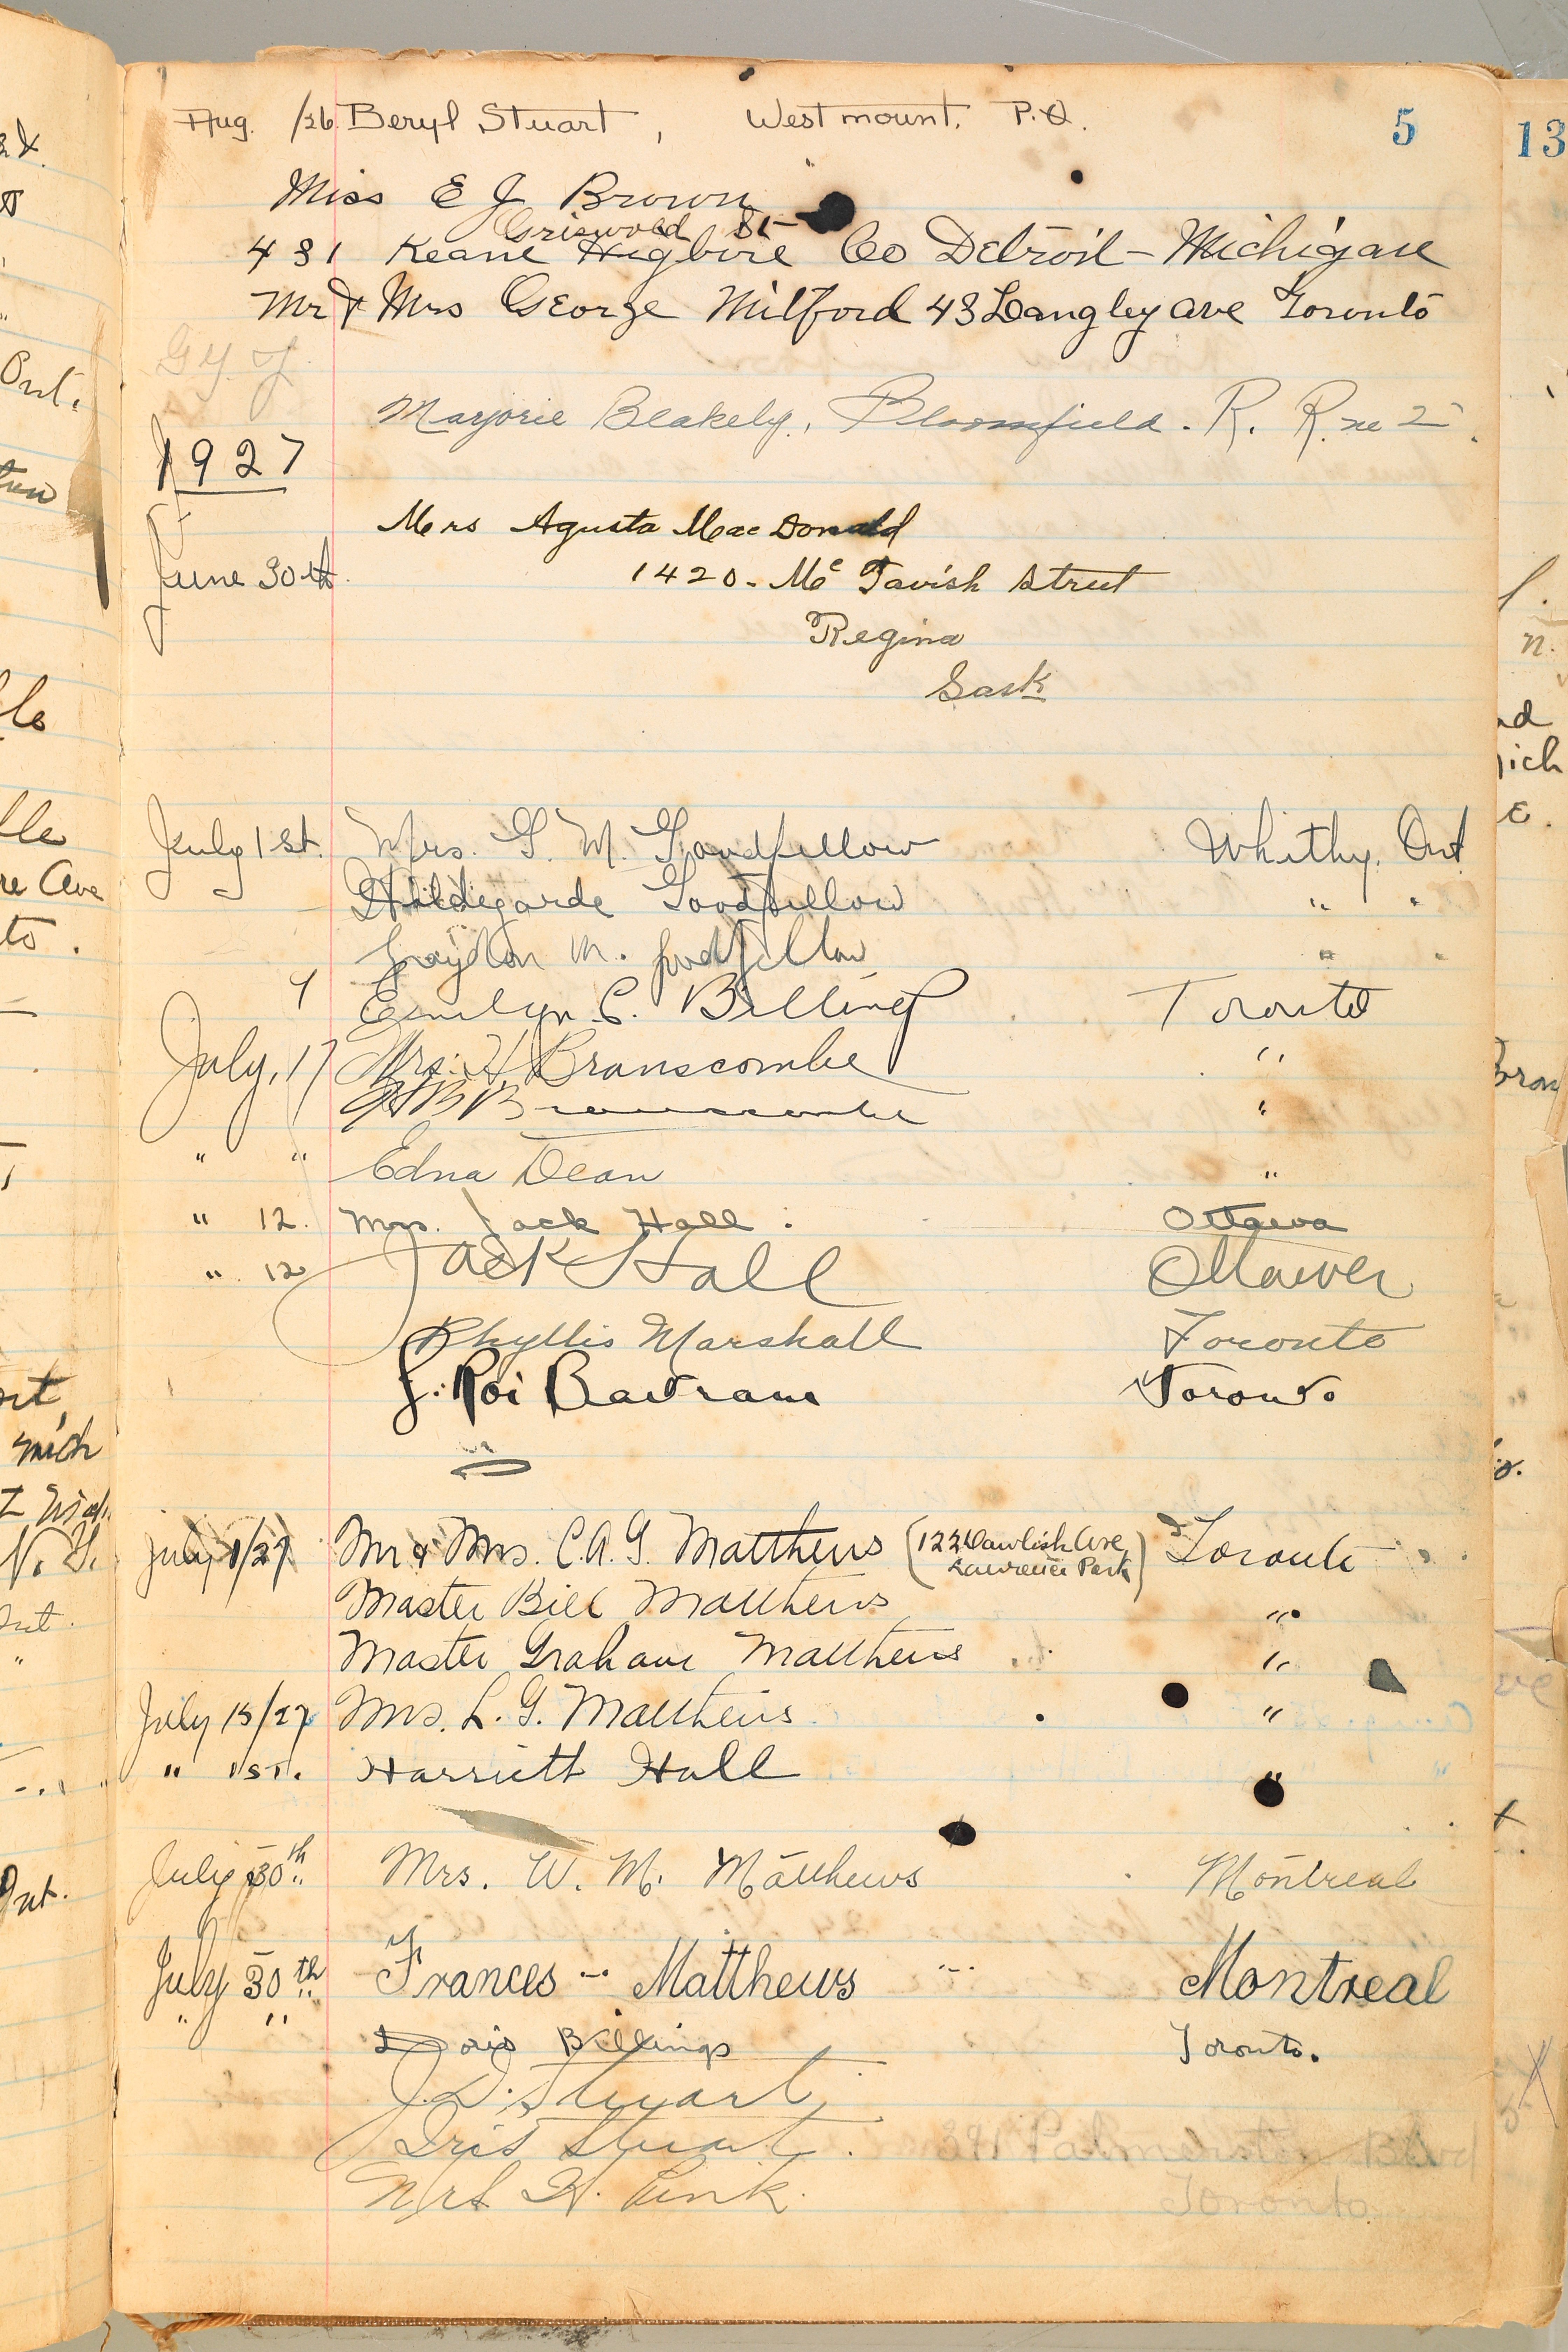 5
13
Aug. /26. Beryl Stuart, Westmount, P.Q.
Miss E J Brown
Griswold St
431 Keane Higbire Co Detroit - Michigan
Mr & Mrs George Milford 43 Langley ave Toronto
Marjorie Blakely, Bloomfield. R. R. no 2
1927
Mrs Agusta MacDonald
June 30th 1420 - Mc Tavish Street
Regina
Sask
July 1st. Mrs. G. M. Goodfellow Whitby, Ont
Hildegarde Goodfellow " "
Graydon M. Goodfellow " "
Emilyn C. Billings Toronto
July, 17 Mrs. H. Branscombe "
H B Branscombe "
" " Edna Dean "
" 12. Mrs. Jack Hall. Ottawa
" 12 Jack Hall Ottawa
Phyllis Marshall Toronto
J. Roi Bartram Toronto
July 1/27 Mr & Mrs. C. A. G. Matthews (122 Dawlish Ave, Lawrence Park) Toronto
Master Bill Matthews "
Master Graham Matthews "
July 15/27 Mrs. L. G. Matthews "
" 1st. Harriett Hall "
July 30th Mrs. W. M. Matthews Montreal
July 30th Frances Matthews Montreal
" " Doris Billings Toronto.
J. D. Stuart
Iris Stuart.
Mrs H. Pink. Palmerston Blvd
Toronto